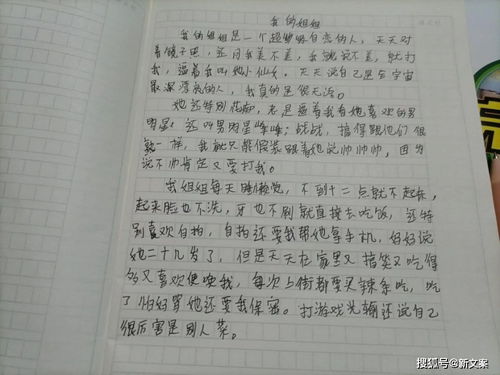 我的姐姐
我的姐姐是一个超级自恋的人，天天对
着镜子照，还问我美不美，我就说不美，就打
我，逼着我叫她小仙女。天天说自己是全宇宙
最漂亮的人，我真的是很无语。
她还特别花痴，老是逼着我看她喜欢的男
明星，还叫男明星哥哥，战战，搞得跟他们很
熟一样，我就只能假装跟着她说帅帅帅，因为
说不帅肯定又要打我。
我姐姐每天睡懒觉，不到十二点就不起床，
起来脸也不洗，牙也不刷就直接去吃饭，还特
别喜欢自拍，自拍还要我帮她拿手机，妈妈说
她二十几岁了，但是天天在家里又搞笑又吃得
多又喜欢使唤我，每次上街都要买辣条吃，吃
了怕妈骂她还要我保密。打游戏光输还说自己
很厉害是别人菜。
搜狐号@新文案